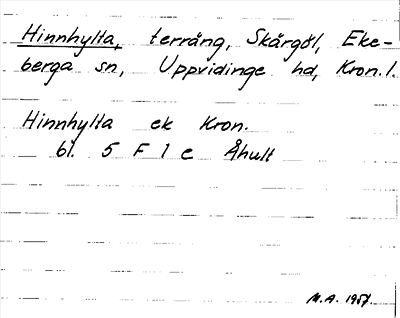 Hinnhylta, terräng, Skärgöl, Eke-
berga sn, Uppvidinge hd, Kron.l.
Hinnhylta ek Kron.
bl. 5 F 1 e Åhult
M.A. 1957.